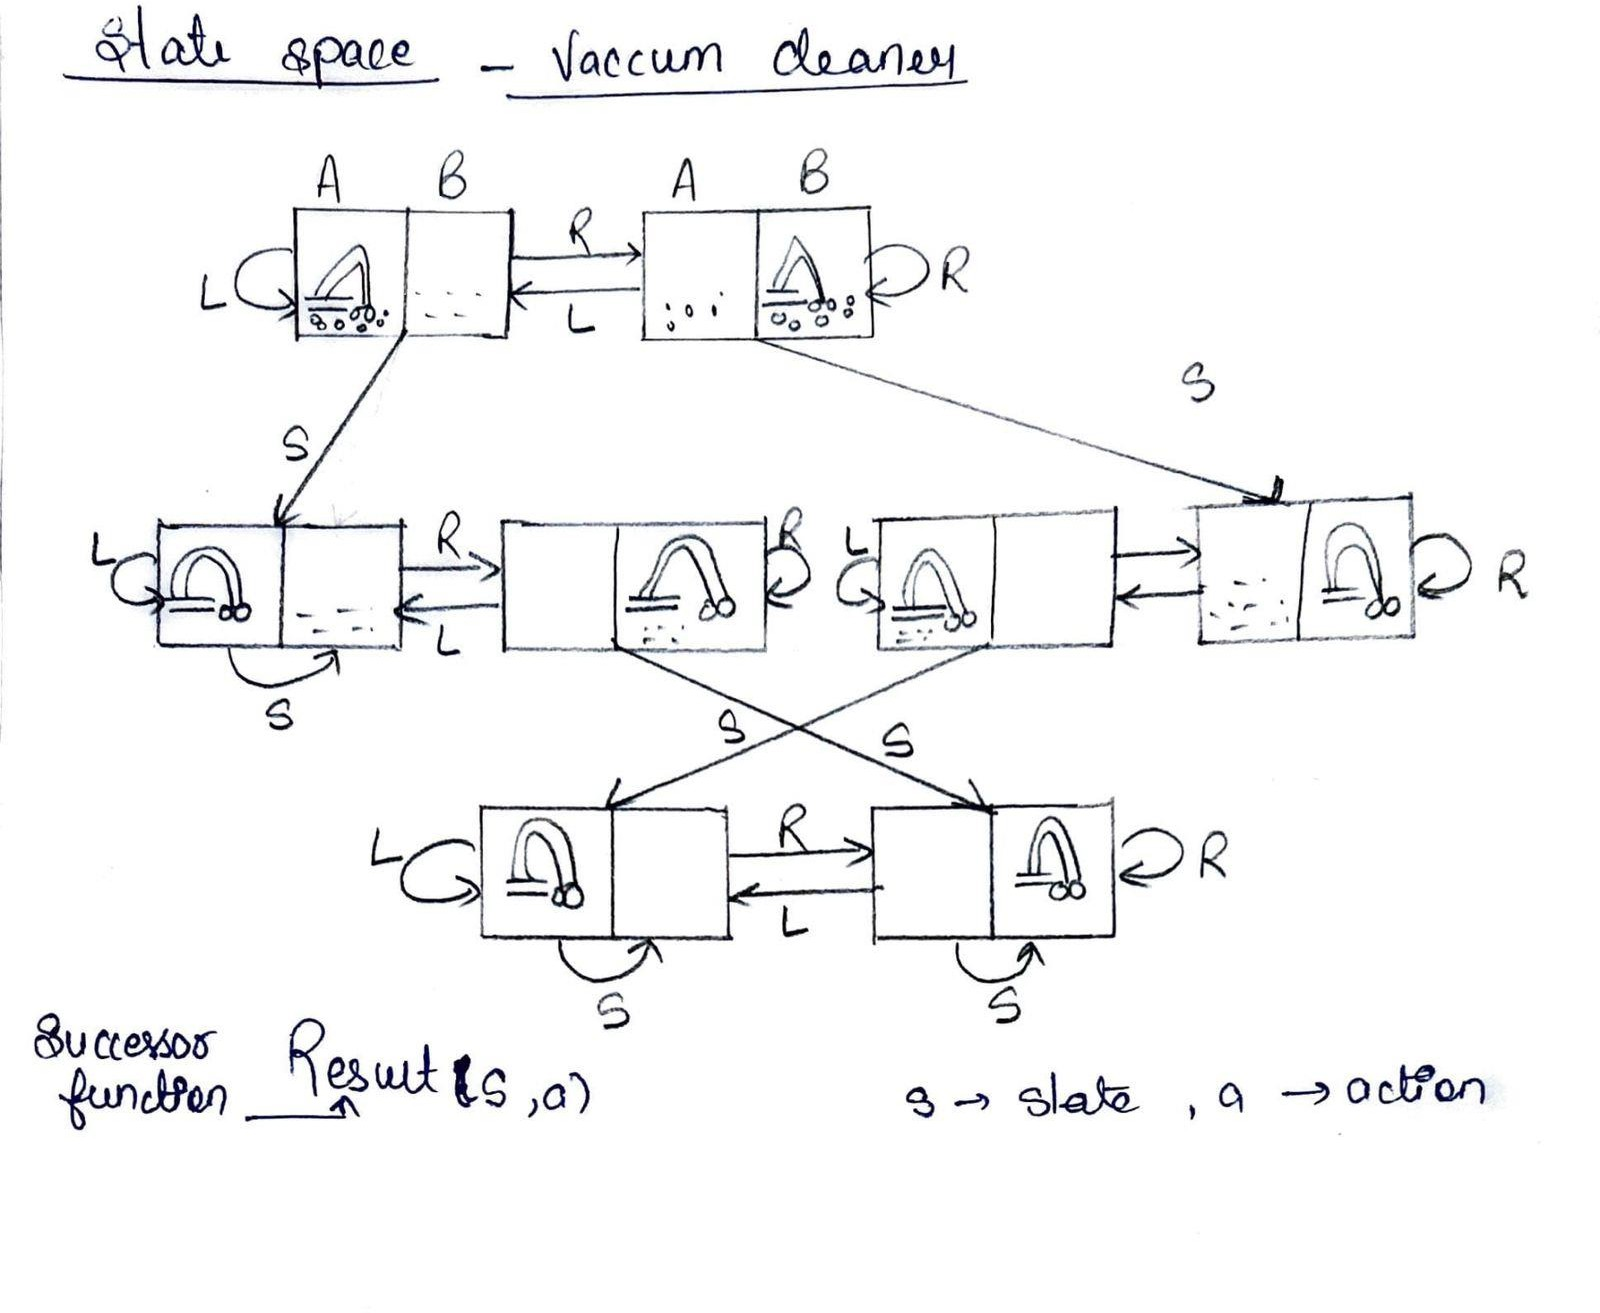 State space - Vaccum cleaner
A B A B
R
L R
L
S
S
L R R L R
L
S
S S
L R R
L
S S
Successor
function Result (S, a) s → state , a → action